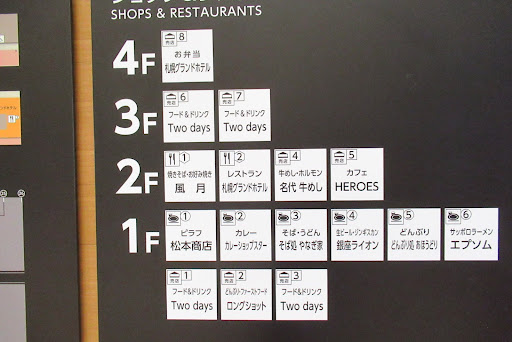 SHOPS & RESTAURANTS
4F
売店 8
お弁当
札幌グランドホテル
3F
売店 6
フード&ドリンク
Two days
売店 7
フード&ドリンク
Two days
2F
1
焼きそば・お好み焼き
風月
2
レストラン
札幌グランドホテル
売店 4
牛めし・ホルモン
名代 牛めし
売店 5
カフェ
HEROES
1F
1
ピラフ
松本商店
2
カレー
カレーショップスター
3
そば・うどん
そば処 やなぎ家
4
生ビール・ジンギスカン
銀座ライオン
5
どんぶり
どんぶり処 あほうどり
6
サッポロラーメン
エプソム
売店 1
フード&ドリンク
Two days
売店 2
どんぶり・ファーストフード
ロングショット
売店 3
フード&ドリンク
Two days